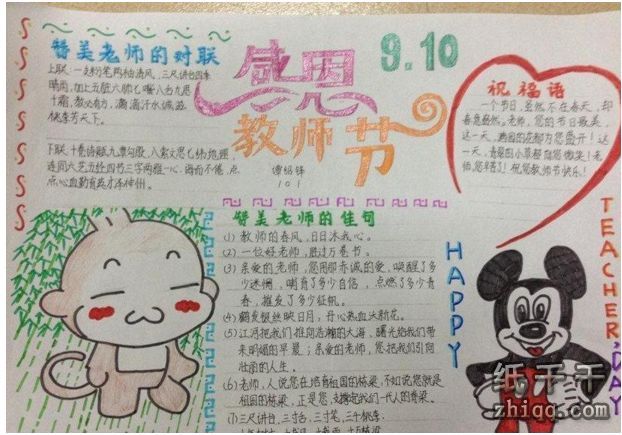 赞美老师的对联
上联：一支粉笔两袖清风，三尺讲台四季
晴雨，加上五脏六肺七嘴八舌九思
十霜，教必有方，滴滴汗水诚滋
桃李芳天下。
下联：十卷诗赋，九章勾股，八索文思七纬地理，
连同六艺五经四书三字两雅一心，诲而不倦，点
点心血勤育英才泽神州。
感恩
教师节
9.10
101
祝福语
一个节日，虽然不在春天，却
春意盎然。老师，您的节日最美，
这一天，满园的花都为您盛开！这
一天，青翠的小草都向您微笑！老
师，您辛苦了！祝您教师节快乐！
赞美老师的佳句
(1) 教师的春风，日日沐我心。
(2) 一位好老师，胜过万卷书。
(3) 亲爱的老师，您用那赤诚的爱，唤醒了多
少迷惘，哺育了多少自信，点燃了多少青
春，摧发了多少征帆。
(4) 鹤发银丝映日月；丹心热血沃新花。
(5) 江河把我们推向浩瀚的大海，曙光给我们带
来明媚的早晨；亲爱的老师，您把我们引向
壮丽的人生。
(6) 老师，人说您在培育祖国的栋梁，不如说您就是
祖国的栋梁，正是您支撑起我们一代人的脊梁。
(7) 三尺讲台，三寸舌，三寸笔，三千桃李；
HAPPY
TEACHER'DAY
纸千千
zhiqq.com